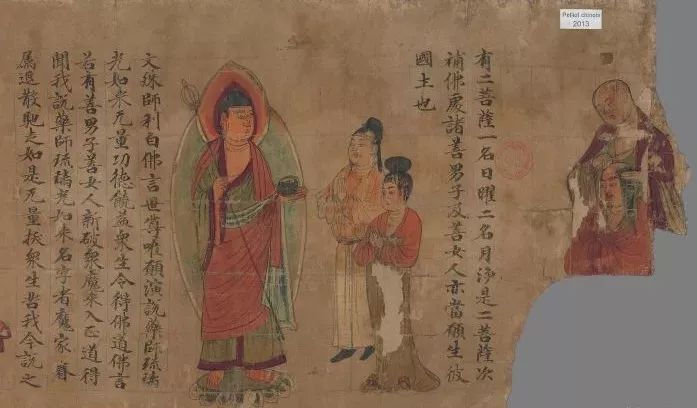 Pelliot chinois
2013
有二菩薩一名日曜二名月淨是二菩薩次
補佛處諸善男子及善女人亦當願生彼
國土也
文殊師利白佛言世尊唯願演說藥師琉璃
光如来无量功德饒益衆生令得佛道佛言
若有善男子善女人新破衆魔来入正道得
聞我說藥師琉璃光如来名字者魔家眷
属退散馳走如是无量拔衆生苦我今說之